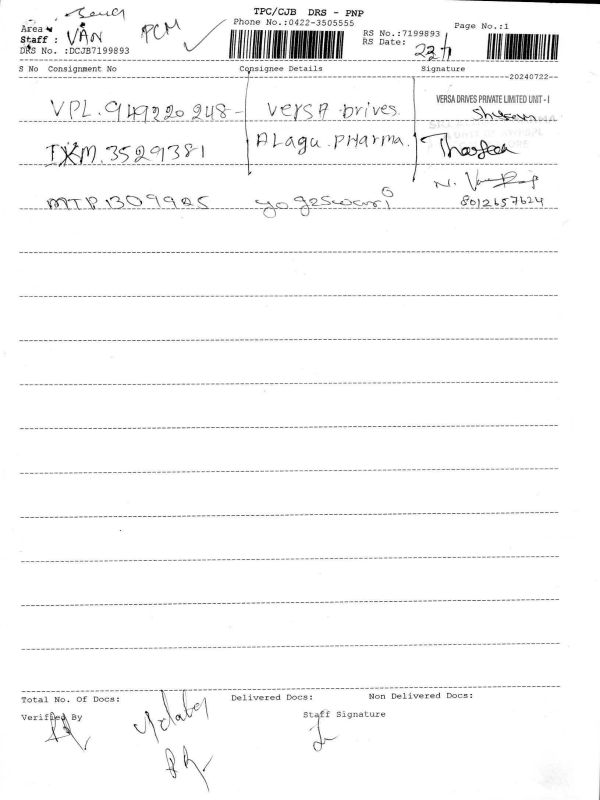 TPC/CJB DRS - PNP
Phone No.:0422-3505555
Page No.:1
Area
PCM
Staff : VAN
RS No.:7199893
RS Date: 23/7
DRS No. :DCJB7199893
S No Consignment No Consignee Details Signature
20240722
VPL.949220248 - Versa Drives
VERSA DRIVES PRIVATE LIMITED UNIT - I
IXM.3529381 Alagu Pharma.
MTP1309925 yogeswari
8012657624
Total No. Of Docs: Delivered Docs: Non Delivered Docs:
Verified By Staff Signature